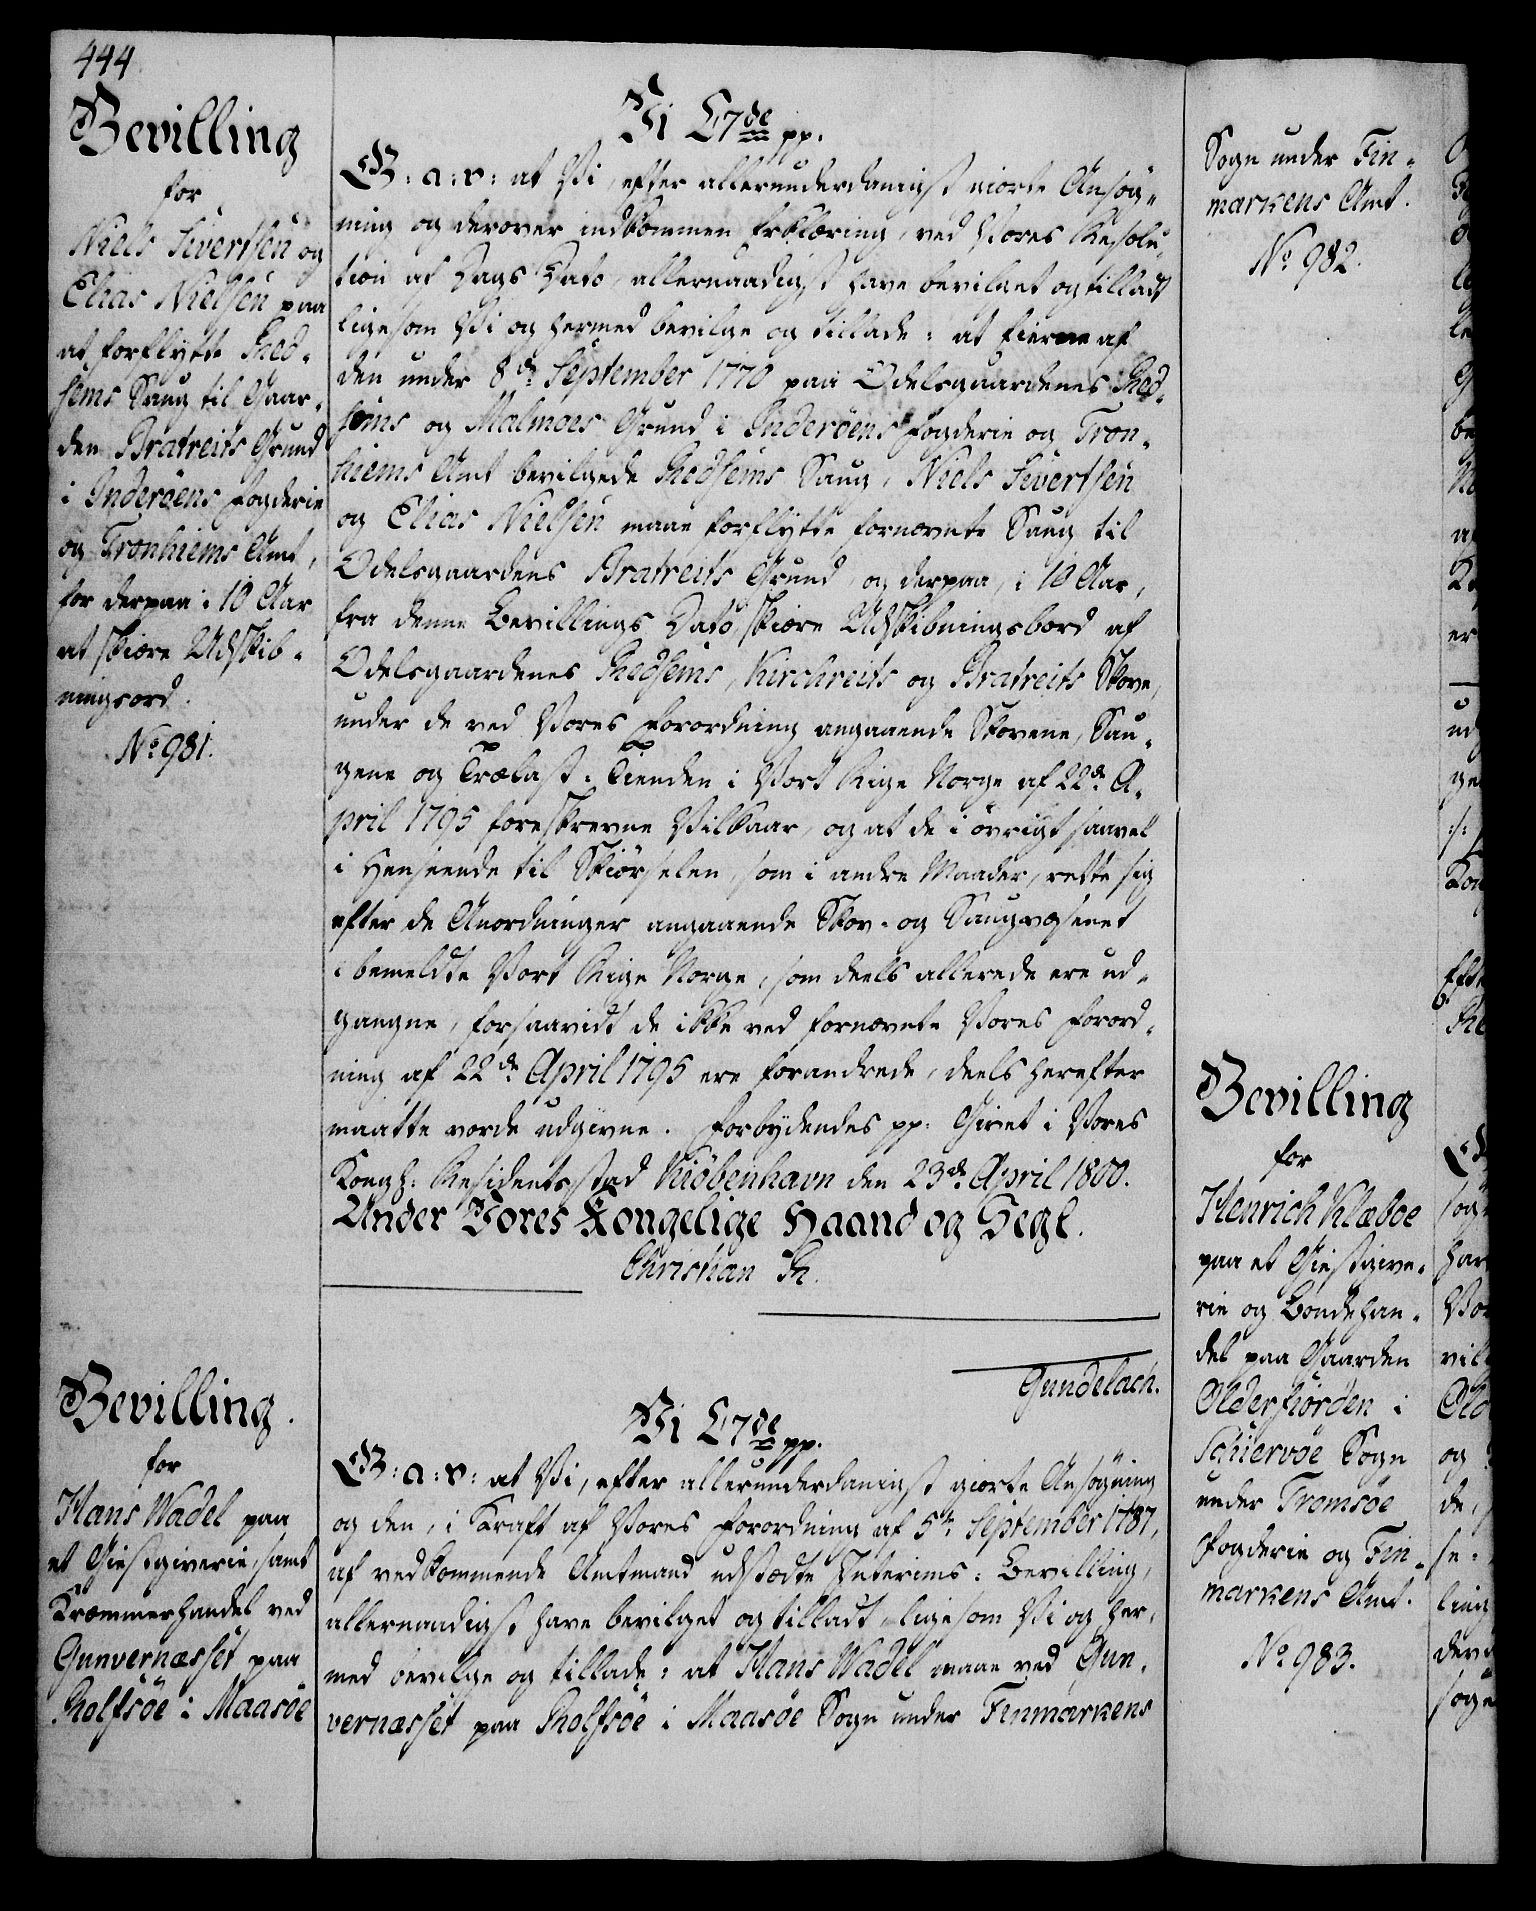 444.
Bevilling
for
Niels Sivertsen og
Elias Nielsen paa
at forflytte Rød-
seims Saug til Gaar-
den Bratreits Grund
i Inderöens Fogderie
og Tronhiems Amt,
for derpaa i 10 Aar
at skiære Udskib-
ningsord.
No 981.
Vi C7de pp.
G: a: v: at Vi, efter allerunderdanigst giorte Ansøg-
ning og derover indkommen Erklæring, ved Vores Resolu-
tion af Dags Dato, allernaadigst have bevilget og tilladt
ligesom Vi og hermed bevilge og tillade: at Eierne af
den under 8de September 1770 paa Odelsgaardenes Rød-
seims og Malmoes Grund i Inderöens Fogderie og Tron-
hiems Amt bevilgede Rødseims Saug, Niels Sivertsen
og Elias Nielsen maae forflytte fornævnte Saug til
Odelsgaardens Bratreits Grund, og derpaa, i 10 Aar,
fra denne Bevillings Dato, skiære Udskibningsbord af
Odelsgaardenes Rødseims, Kirchreits og Bratreits Skove,
under de ved Vores Forordning angaaende Skovene, Sau-
gene og Trælast-Tienden i Vort Rige Norge af 22de A-
pril 1795 foreskrevne Vilkaar, og at de i övrigt saavel
i Henseende til Skiörselen, som i andre Maader, rette sig
efter de Anordninger angaaende Skov- og Saugvæsenet
i bemeldte Vort Rige Norge, som deels allerede ere ud-
gangne, forsaavidt de ikke ved fornævnte Vores Forord-
ning af 22de April 1795 ere forandrede, deels herefter
maatte vorde udgivne. Forbydendes pp: Givet i Vores
Kongl: Residentsstad Kiöbenhavn den 23de April 1800.
Under Vores Kongelige Haand og Segl.
Christian R.
Gundelach.
Bevilling.
for
Hans Wadel paa
et Giestgiverie, samt
Kræmmerhandel ved
Gunvernæsset paa
Rolfsöe i Maasöe
Vi C7de pp.
G: a: v: at Vi, efter allerunderdanigst giorte Ansøgning
og den, i Kraft af Vores Forordning af 5te September 1787,
af vedkommende Amtmand udstædte Interims-Bevilling,
allernaadigst have bevilget og tilladt, ligesom Vi og her-
med bevilge og tillade: at Hans Wadel maae ved Gun-
vernæsset paa Rolfsöe i Maasöe Sogn under Finmarkens
Sogn under Fin-
markens Amt.
No 982.
Bevilling
for
Henrich Klæboe
paa et Giestgive-
rie og Bondehan-
del paa Gaarden
Olderfiorden i
Schiervöe Sogn
under Tromsöe
Fogderie og Fin-
markens Amt.
No 983.